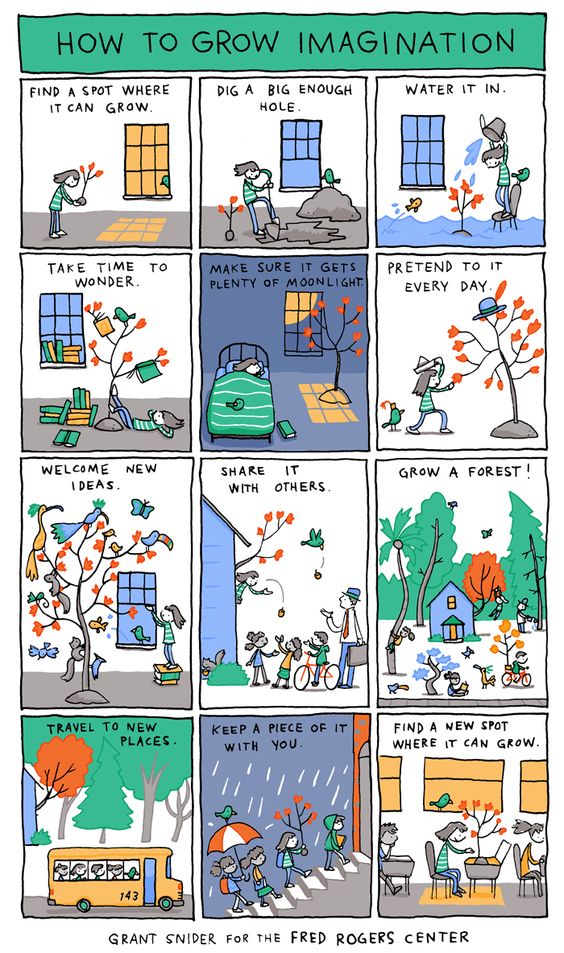 HOW TO GROW IMAGINATION
FIND A SPOT WHERE
IT CAN GROW.
DIG A BIG ENOUGH
HOLE.
WATER IT IN.
TAKE TIME TO
WONDER.
MAKE SURE IT GETS
PLENTY OF MOONLIGHT.
PRETEND TO IT
EVERY DAY.
WELCOME NEW
IDEAS.
SHARE IT
WITH OTHERS.
GROW A FOREST!
TRAVEL TO NEW
PLACES.
143
KEEP A PIECE OF IT
WITH YOU.
FIND A NEW SPOT
WHERE IT CAN GROW.
GRANT SNIDER FOR THE FRED ROGERS CENTER